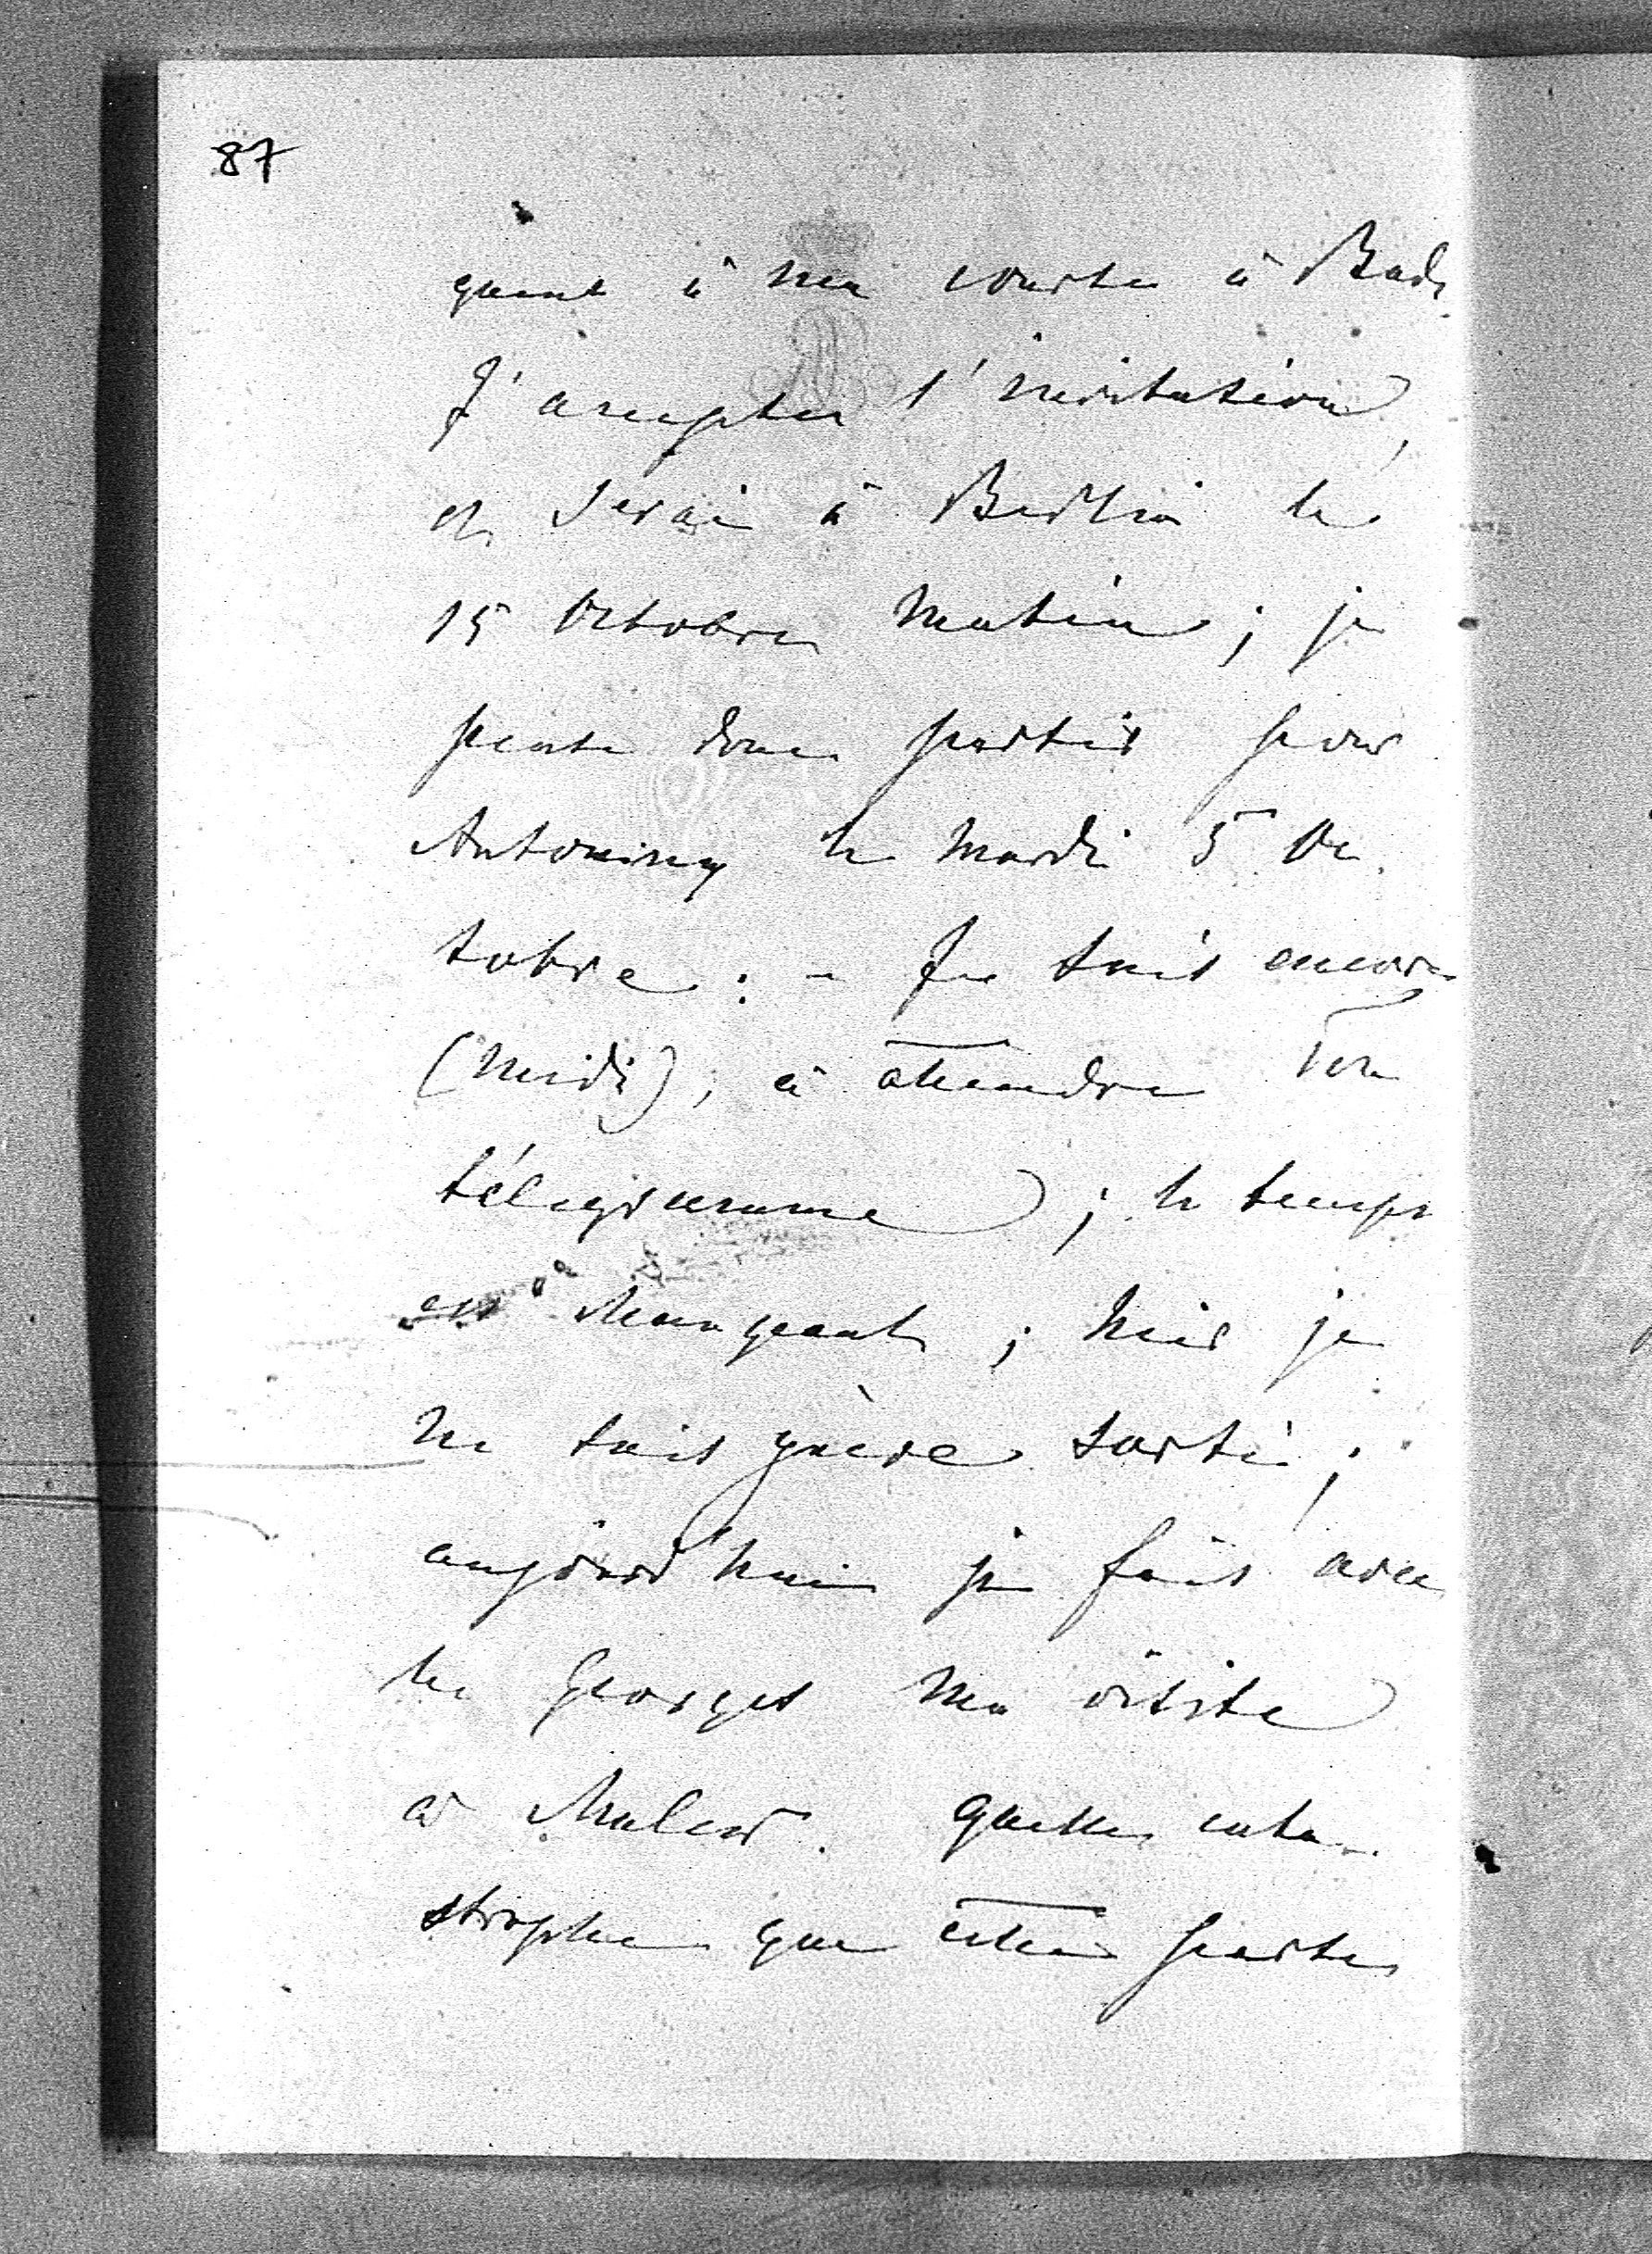 87
quant à ma course à Bade
J'accepte l'invitation,
et serai à Berlin le
15 Octobre matin ; je
pense donc partir pour
Antoniny le mardi 5 Oc
tobre : - Je suis encore
(midi), à attendre ton
télégramme ; le temps
est changeant ; hier je
ne suis guère sorti ;
aujourd'hui je fais avec
les Georges ma visite
à Malew. quelle cata-
strophe que cette perte